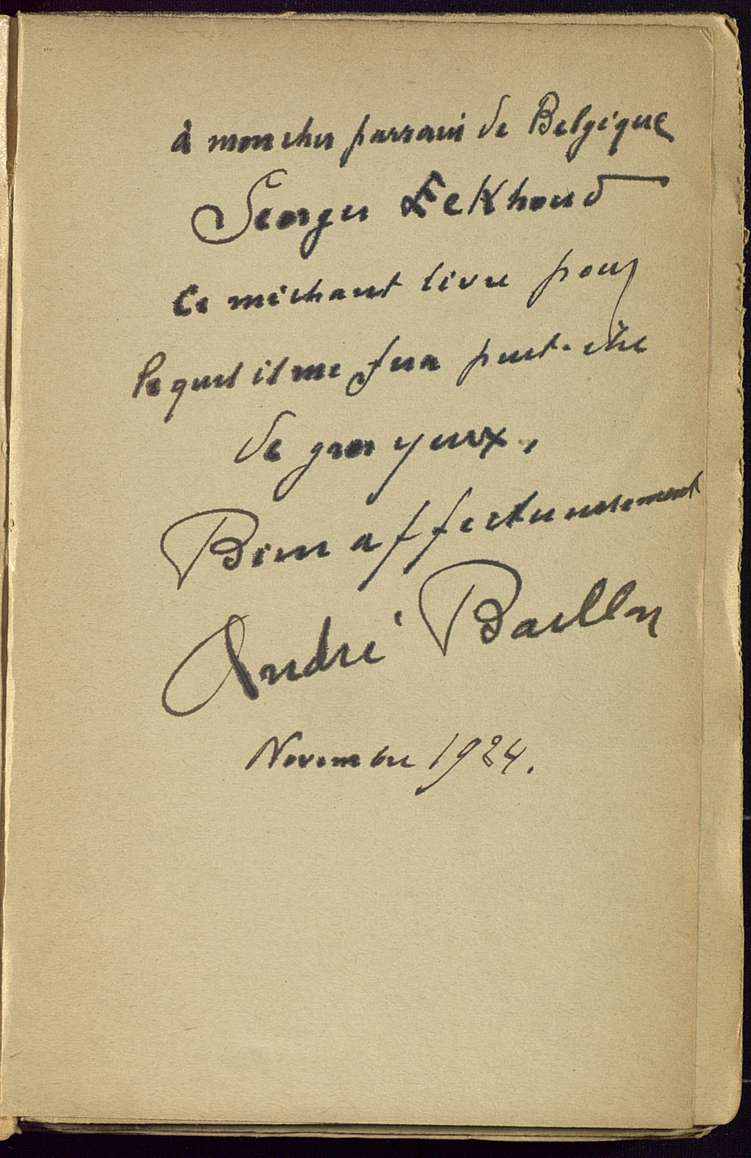 à mon cher parrain de Belgique
Georges Eekhoud
Ce méchant livre pour
lequel il me fera peut-être
de gros yeux,
Bien affectueusement
André Baillon
Novembre 1924.